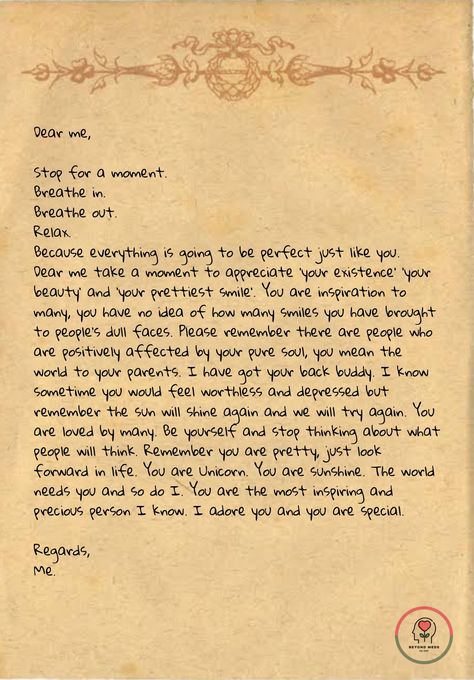 Dear me,
Stop for a moment.
Breathe in.
Breathe out.
Relax.
Because everything is going to be perfect just like you.
Dear me take a moment to appreciate 'your existence' 'your
beauty' and 'your prettiest smile'. You are inspiration to
many, you have no idea of how many smiles you have brought
to people's dull faces. Please remember there are people who
are positively affected by your pure soul, you mean the
world to your parents. I have got your back buddy. I know
sometime you would feel worthless and depressed but
remember the sun will shine again and we will try again. You
are loved by many. Be yourself and stop thinking about what
people will think. Remember you are pretty, just look
forward in life. You are Unicorn. You are sunshine. The world
needs you and so do I. You are the most inspiring and
precious person I know. I adore you and you are special.
Regards,
Me.
BEYOND MEDS